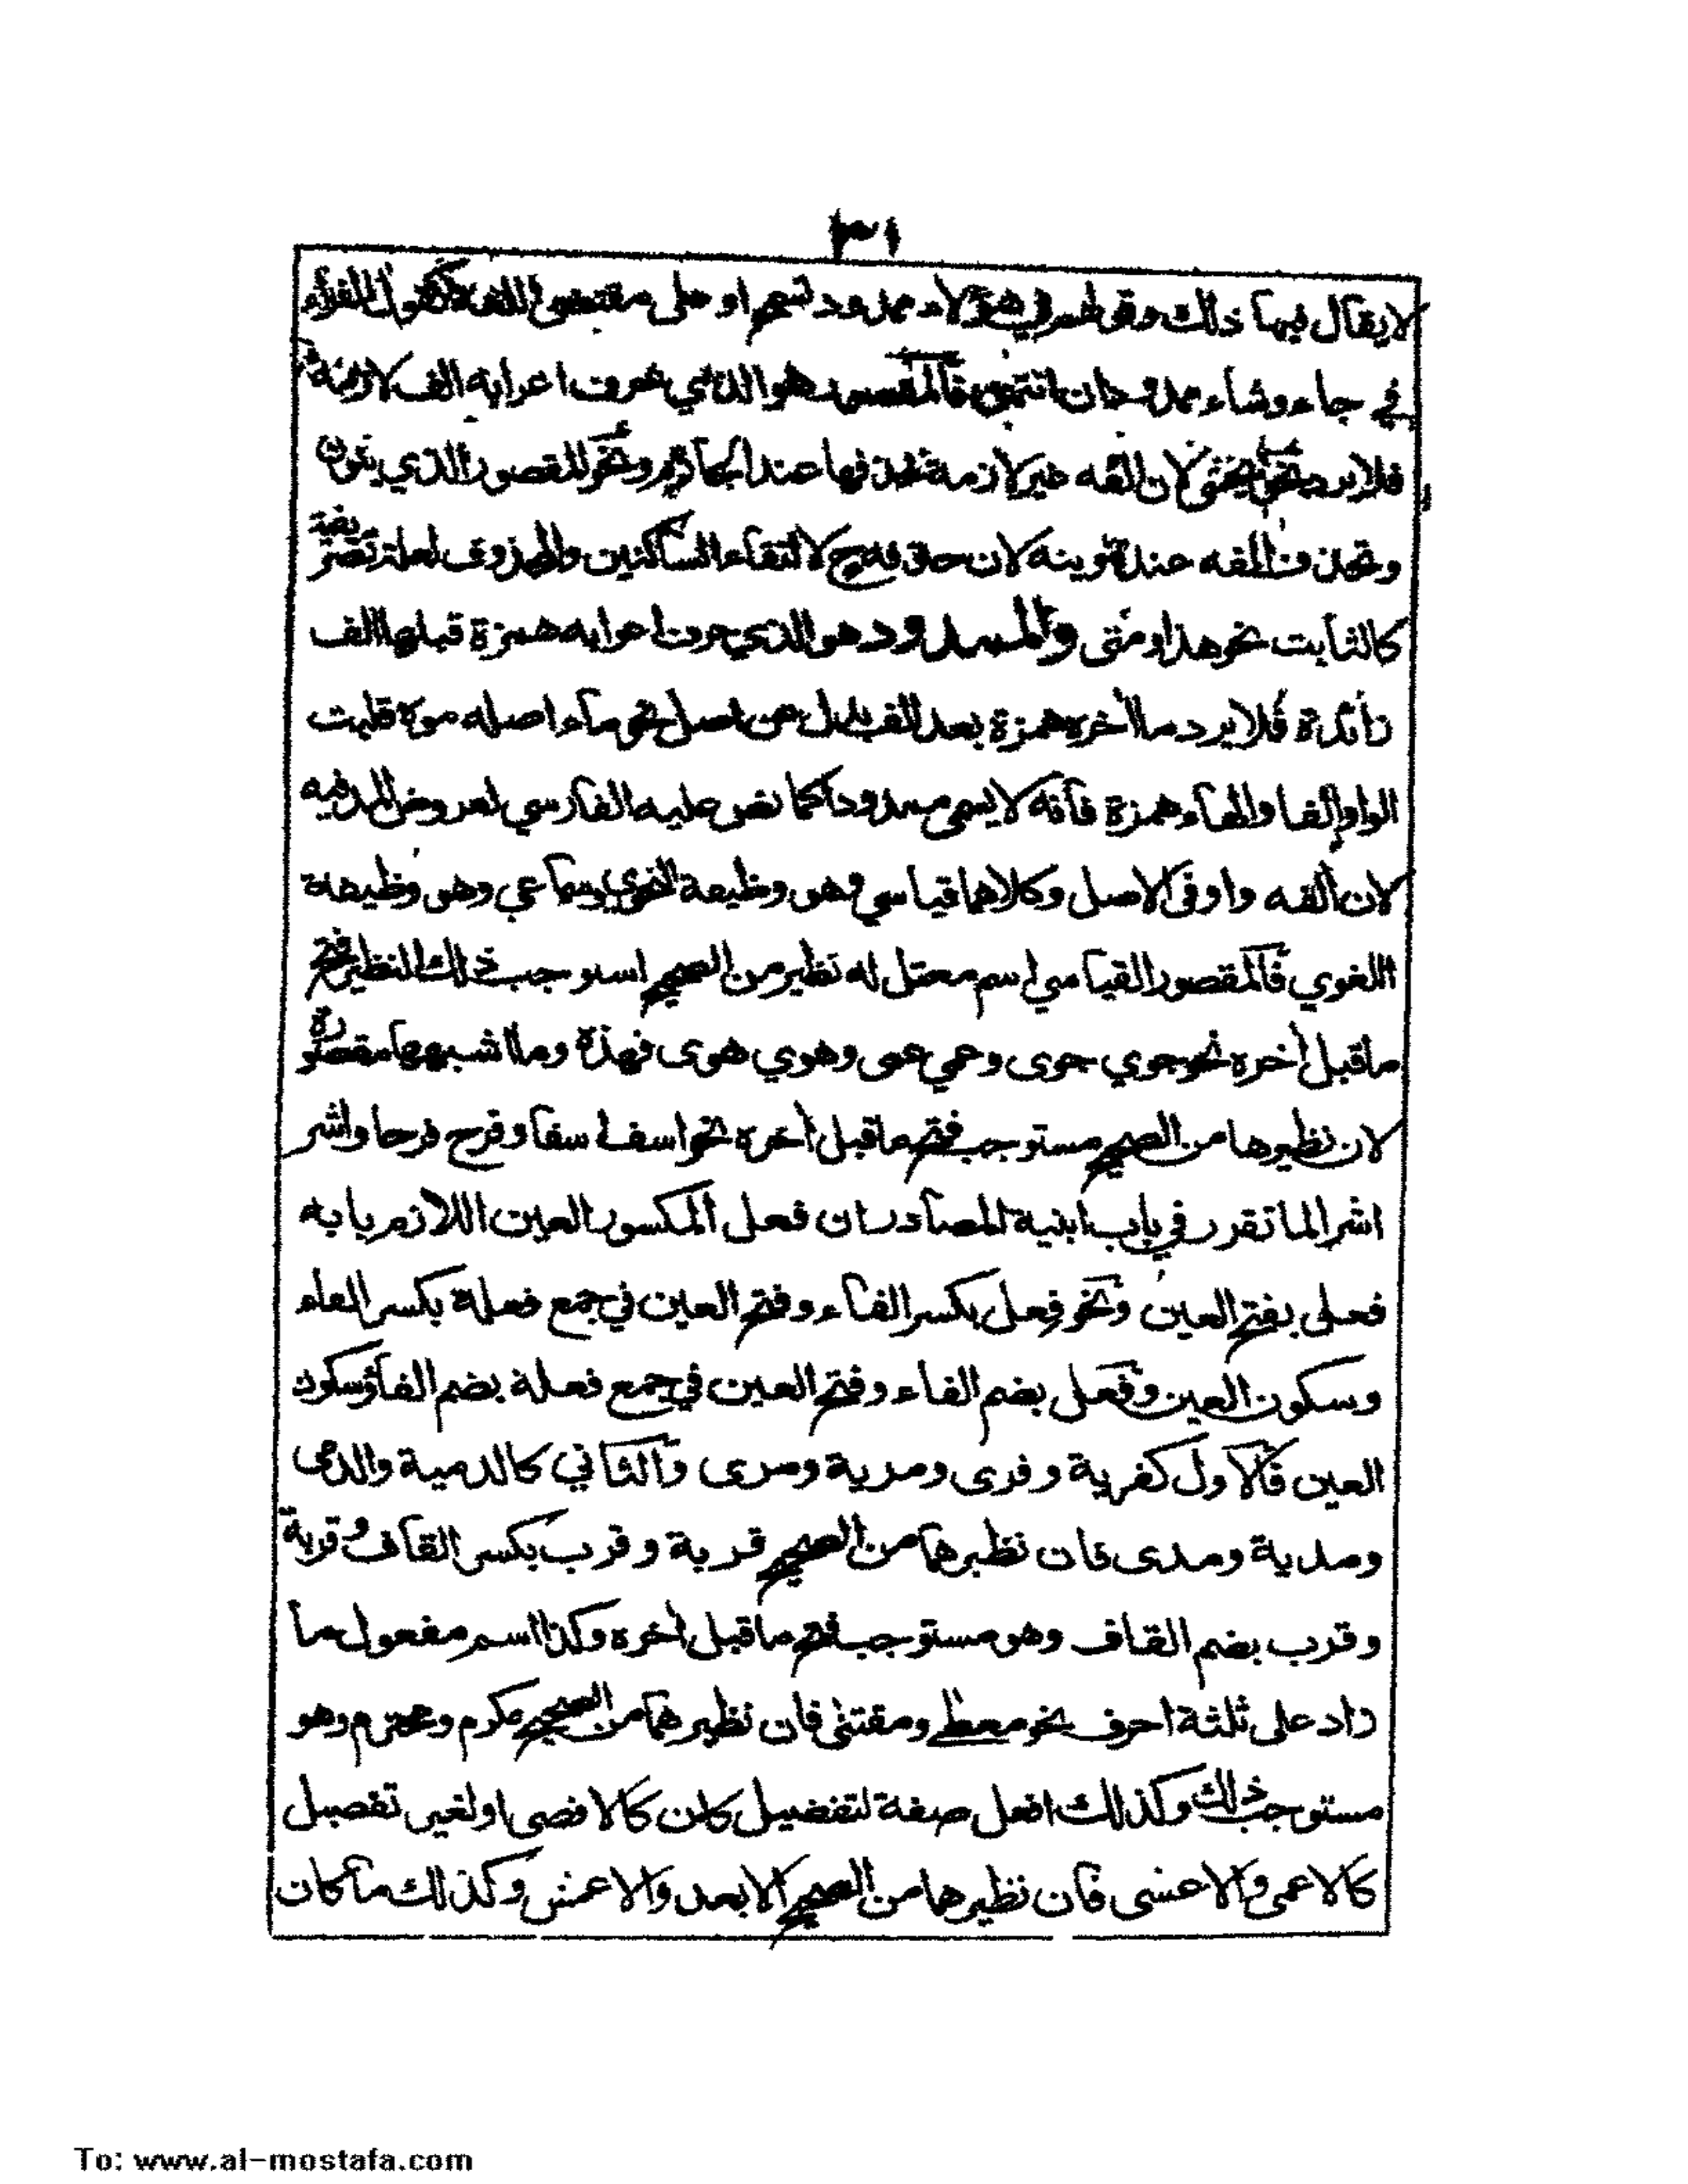 لا يقال فيها ذلك وقولهم في هؤلاء ممدود تسمح او على مقتضى اللغة كقول القراء
في جاء وشاء ممدودان انتهى فالمقصور هو الذي حرف اعرابه الف لازمة
فلا يرد نحو يخشى لان الفه غير لازمة لحذفها عند الجازم ونحو المقصور الذي ينون
وتحذف الفه عند تنوينه لان حذفه ح لالتقاء الساكنين والمحذوف لعلة تصريفية
كالثابت نحو هذا ومثنى والممدود هو الذي حرف اعرابه همزة قبلها الف
زائدة فلا يرد ما اخره همزة بعد الف بدل عن اصل نحو ماء اصله موه قلبت
الواو الفا والهاء همزة فانه لا يسمى ممدودا كما نص عليه الفارسي لعروض المد فيه
لان الفه واو فى الاصل وكلاهما قياسي وهو وظيفة النحوي وسماعي وهو وظيفة
اللغوي فالمقصور القياسي اسم معتل له نظير من الصحيح استوجب ذلك النظير فتح
ماقبل اخره نحو جوي جوى وعمي عمى وهوي هوى فهذه وما اشبهها مقصورة
لان نظيرها من الصحيح مستوجب فتح ماقبل اخره نحو اسف اسفا وفرح فرحا واشر
اشرا لما تقرر في باب ابنية المصادر ان فعل المكسور العين اللازم بابه
فعلى بفتح العين ونحو فِعل بكسر الفاء وفتح العين في جمع فعلة بكسر الفاء
وسكون العين وفعل بضم الفاء وفتح العين في جمع فعلة بضم الفاء وسكون
العين فالاول كفرية وفرى ومرية ومرى والثاني كالدمية والدمى
ومدية ومدى فان نظيرهما من الصحيح قربة وقرب بكسر القاف وقربة
وقرب بضم القاف وهو مستوجب فتح ماقبل اخره وكذا اسم مفعول ما
زاد على ثلثة احرف نحو معطى ومقتنى فان نظيرهما من الصحيح مكرم ومحترم وهو
مستوجب ذلك وكذلك افعل صفة لتفضيل كان كالاقصى او لغير تفضيل
كالاعمى والاعشى فان نظيرها من الصحيح الابعد والاعمش وكذلك ما كان
To: www.al-mostafa.com